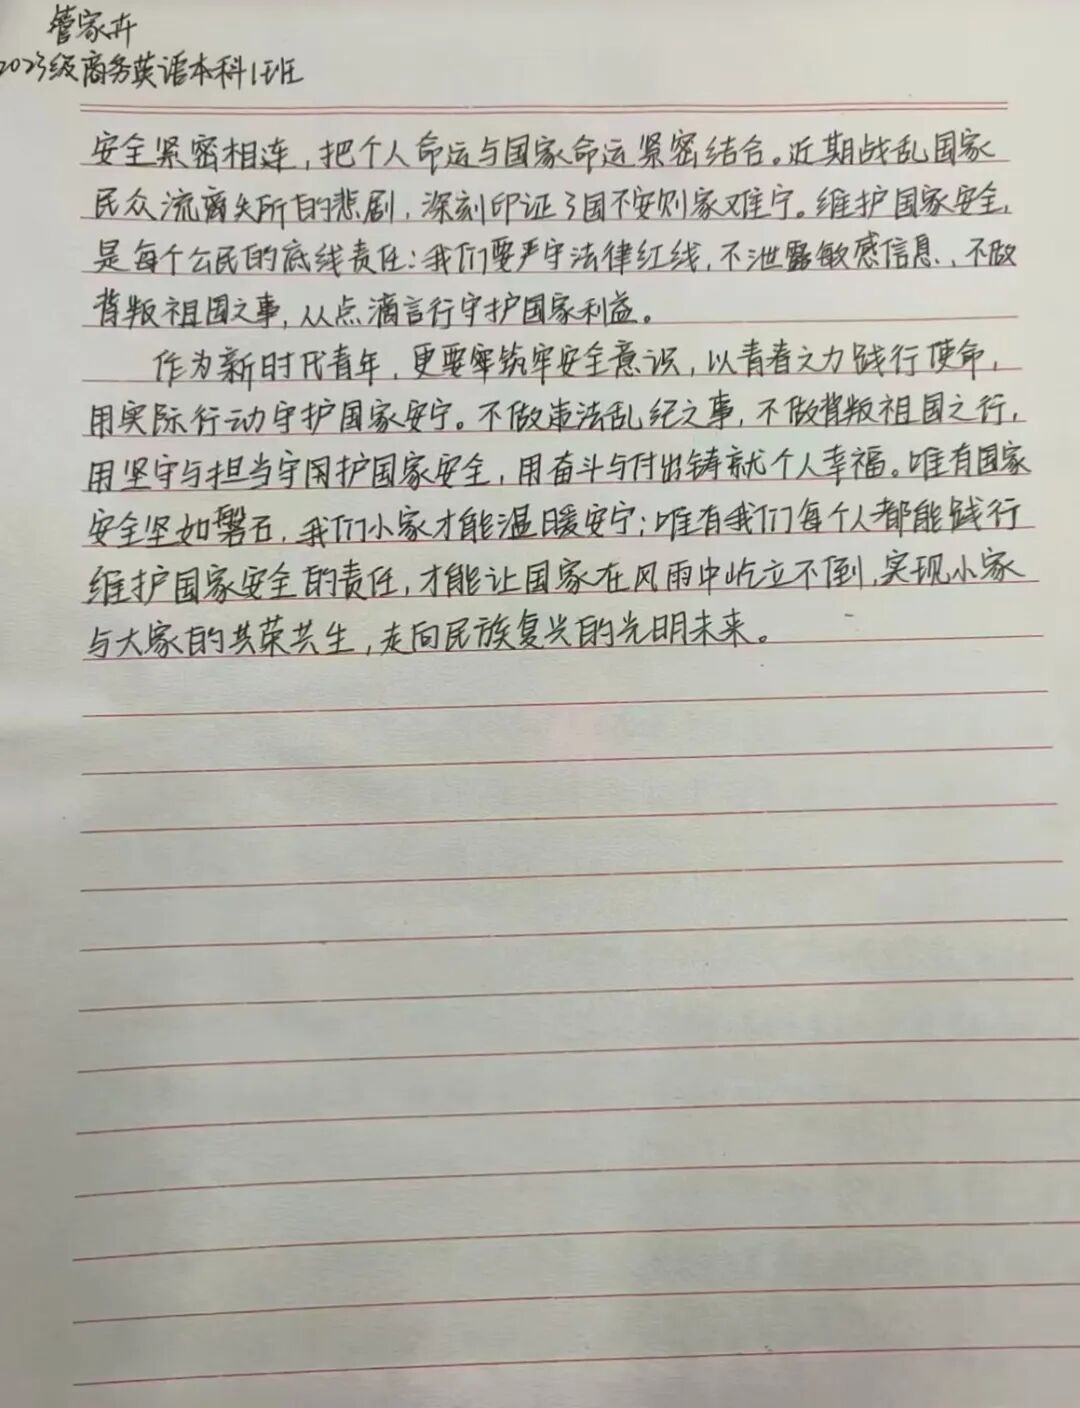 管家卉
2023级商务英语本科1班
安全紧密相连，把个人命运与国家命运紧密结合。近期战乱国家
民众流离失所的悲剧，深刻印证了国不安则家难宁。维护国家安全，
是每个公民的底线责任：我们要严守法律红线，不泄露敏感信息、不做
背叛祖国之事，从点滴言行守护国家利益。
作为新时代青年，更要牢筑牢安全意识，以青春之力践行使命，
用实际行动守护国家安宁。不做违法乱纪之事，不做背叛祖国之行，
用坚守与担当守护国家安全，用奋斗与付出铸就个人幸福。唯有国家
安全坚如磐石，我们小家才能温暖安宁；唯有我们每个人都能践行
维护国家安全的责任，才能让国家在风雨中屹立不倒，实现小家
与大家的共荣共生，走向民族复兴的光明未来。